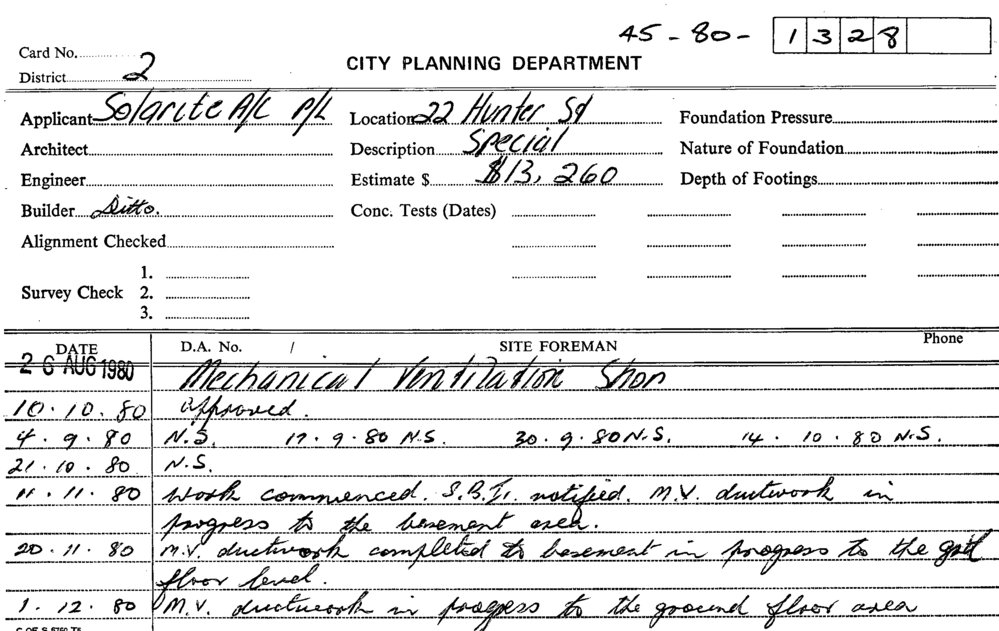 45-80- 1328
Card No.
District 2
CITY PLANNING DEPARTMENT
Applicant Solarite A/C P/L Location 22 Hunter St Foundation Pressure
Architect Description Special Nature of Foundation
Engineer Estimate $ $13,260 Depth of Footings
Builder Ditto. Conc. Tests (Dates)
Alignment Checked
1.
Survey Check 2.
3.
DATE D.A. No. / SITE FOREMAN Phone
26 AUG 1980 Mechanical Ventilation Shop
10.10.80 approved.
4.9.80 N.S. 17.9.80 N.S. 30.9.80 N.S. 14.10.80 N.S.
21.10.80 N.S.
11.11.80 Work commenced. S.B.I. notified. M.V. ductwork in
progress to the basement area.
20.11.80 M.V. ductwork completed to basement in progress to the grd
floor level.
1.12.80 M.V. ductwork in progress to the ground floor area